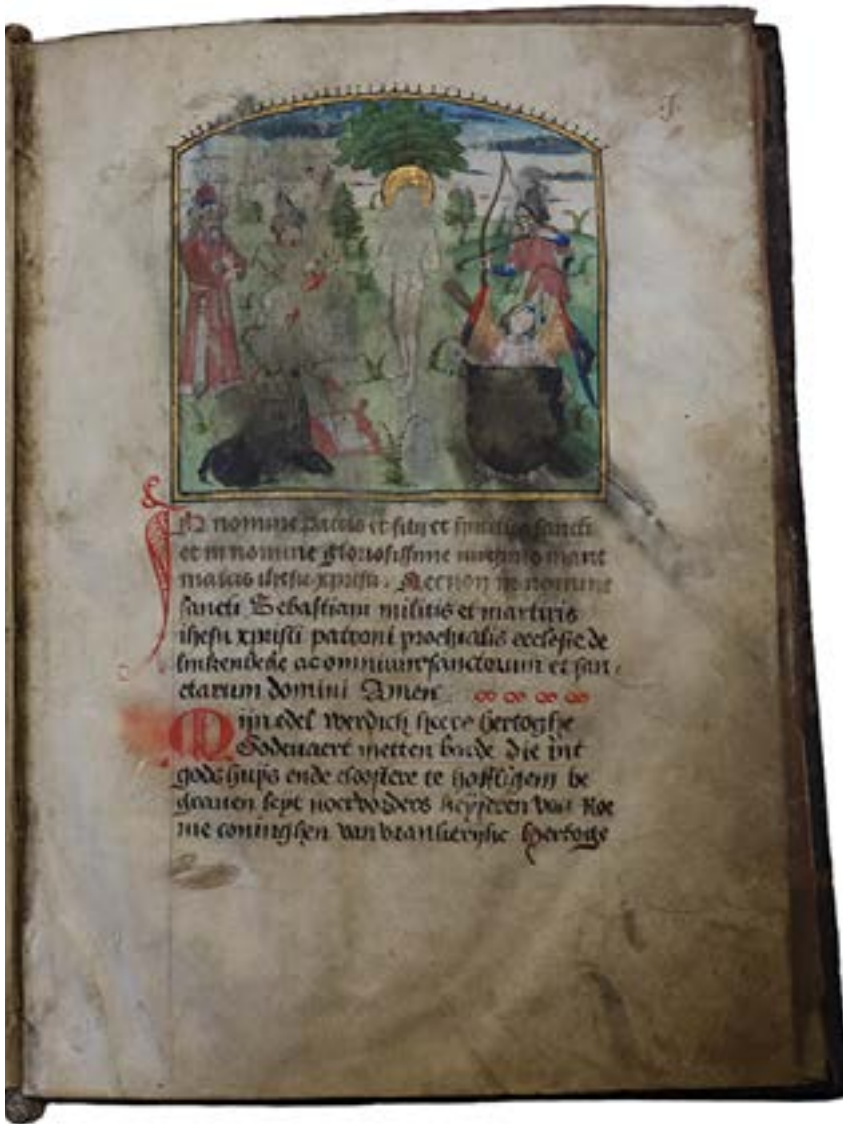 .j.
In nomine patris et filij et spiritus sancti
et in nomine gloriosissime virginis marie
matris ihesu xpristi . Necnon in nomine
sancti Sebastiani militis et martiris
ihesu xpristi patroni prochialis ecclesie de
linkenbeke ac omnium sanctorum et san-
ctarum domini Amen
Mijn edel werdich heere hertoghe
Godevaert metten barde die int
gods huijs ende cloostere te hafligem be
graven leyt voervorders keyseren van Roe
me coninghen van vranckerijke hertoge